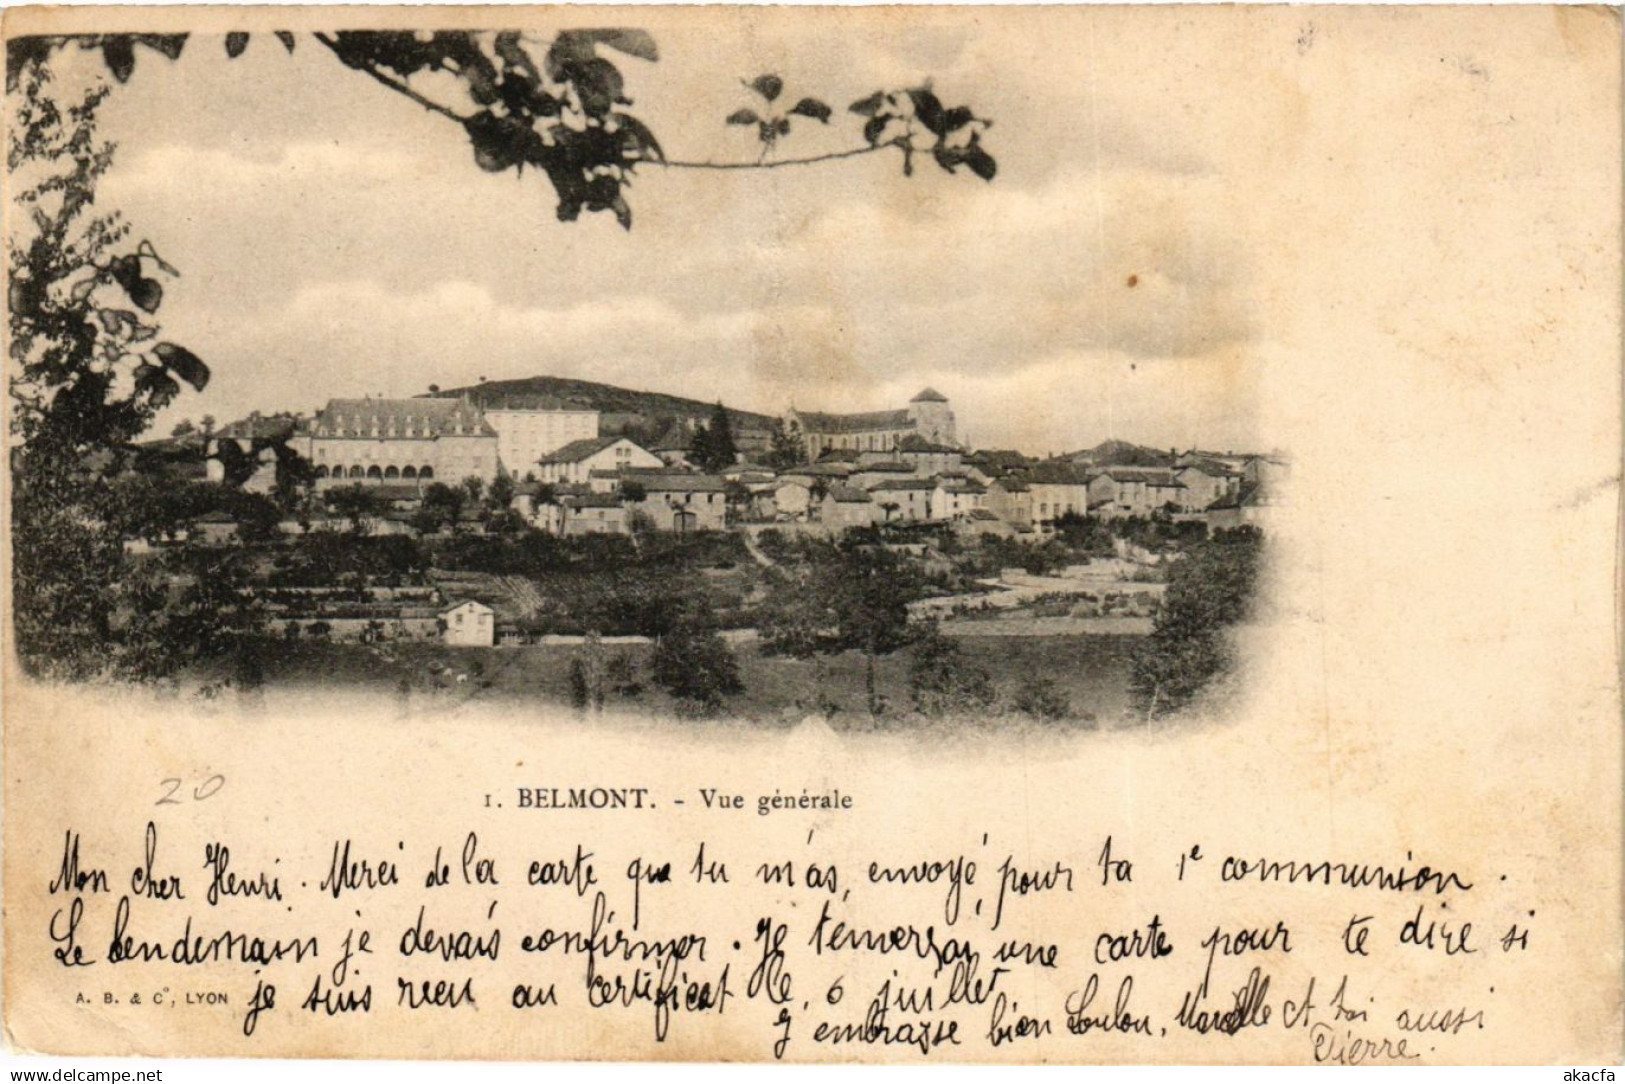 20
1. BELMONT. - Vue générale
Mon cher Henri. Merci de la carte que tu m'as, envoyé, pour ta 1e communion.
Le lendemain je devais confirmer. Je t'enverrai une carte pour te dire si
A. B. & Cº, LYON je suis recu au certificat le, 6 juillet
J'embrasse bien Loulou, Marcelle et toi aussi
Pierre.
delcampe.net
akacfa